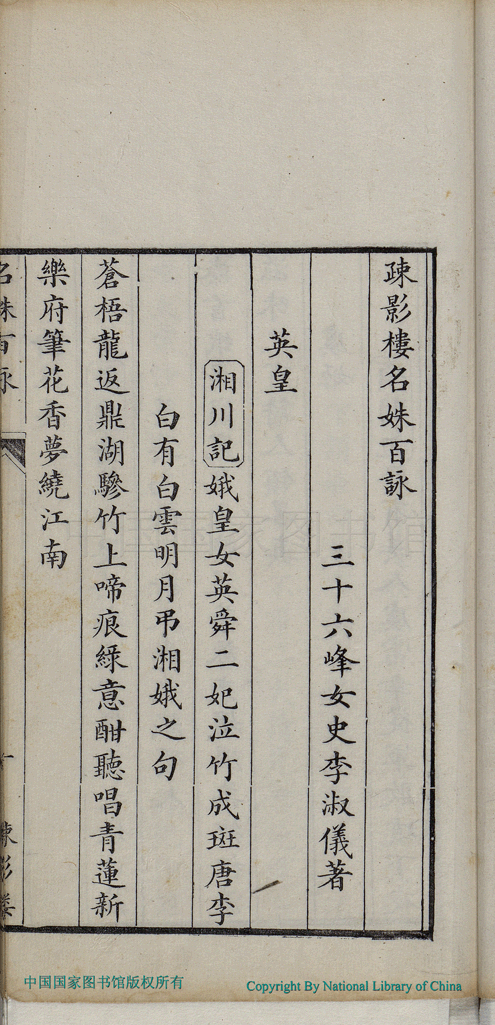 疎影樓名姝百詠
三十六峰女史李淑儀著
英皇
湘川記娥皇女英舜二妃泣竹成斑唐李
白有白雲明月弔湘娥之句
蒼梧龍返鼎湖驂竹上啼痕綠意酣聽唱青蓮新
樂府筆花香夢繞江南
名姝百詠
疎影樓
中国国家图书馆版权所有
Copyright By National Library of China